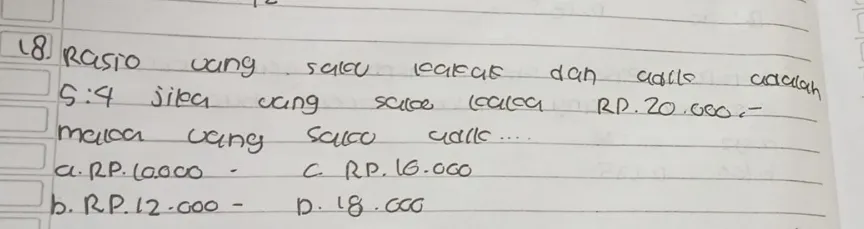 18. Rasio uang saku kakak dan adik adalah
5:4 jika uang saku kaka RP.20.000.-
maka uang saku adik....
a. RP.10.000 - C. RP.16.000
b. RP.12.000 - D. 18.000